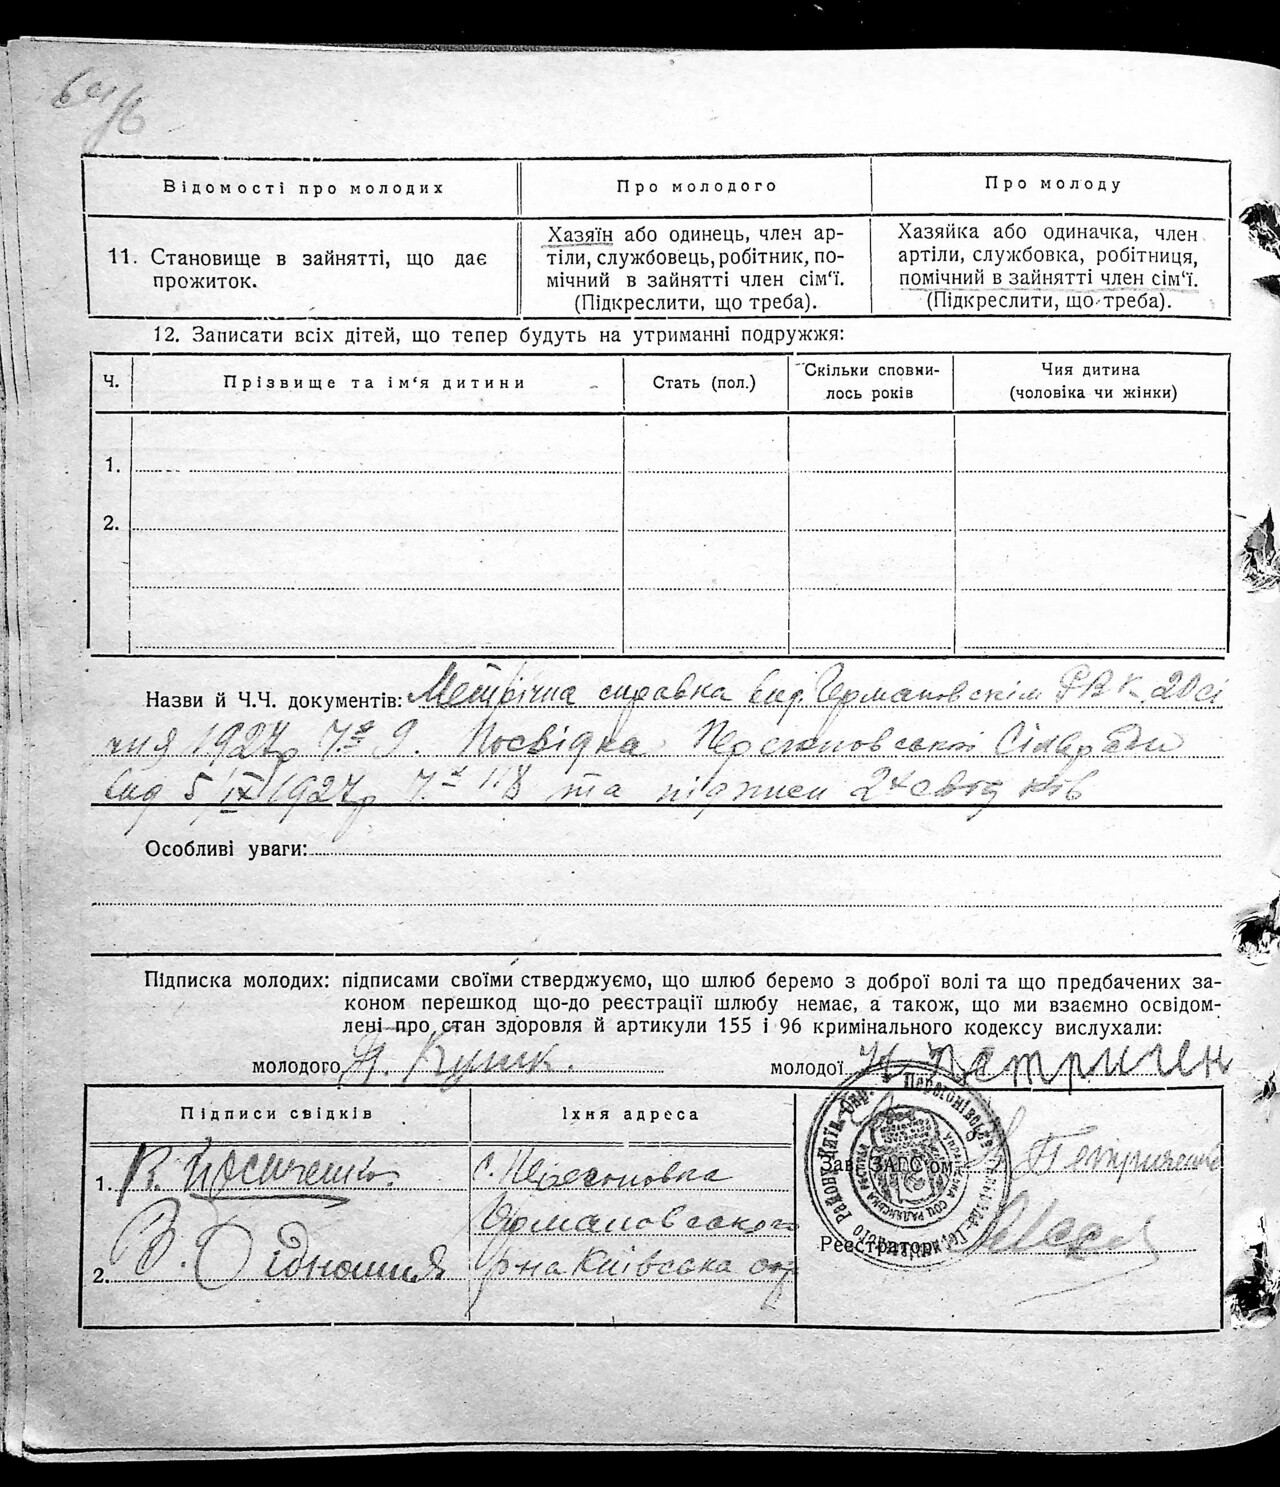 Відомості про молодих
Про молодого
Про молоду
11. Становище в зайнятті, що дає
прожиток.
Хазяїн або одинець, член ар-
тіли, службовець, робітник, по-
мічний в зайнятті член сім'ї.
(Підкреслити, що треба).
Хазяйка або одиначка, член
артіли, службовка, робітниця,
помічний в зайнятті член сім'ї.
(Підкреслити, що треба).
12. Записати всіх дітей, що тепер будуть на утриманні подружжя:
Ч.
Прізвище та ім'я дитини
Стать (пол.)
Скільки сповни-
лось років
Чия дитина
(чоловіка чи жінки)
1.
2.
Назви й Ч.Ч. документів: Метрична справка вид. Германовскім РВК 20 сі
чня 1927р Ч 9. Посвідка Перегоновської Сільради
вид 5/IX 1927р Ч 118 та підписи 2х свідків
Особливі уваги:
Підписка молодих: підписами своїми стверджуємо, що шлюб беремо з доброї волі та що предбачених за-
коном перешкод що-до реєстрації шлюбу немає, а також, що ми взаємно освідом-
лені про стан здоровля й артикули 155 і 96 кримінального кодексу вислухали:
молодого Кулик.
молодої Н Петричен
Підписи свідків
Їхня адреса
1. В.
с. Перегоновка
Германовського
2. В.
р-на Київська окр
Зав. ЗАГС'ом Петриченко
Реєстратор